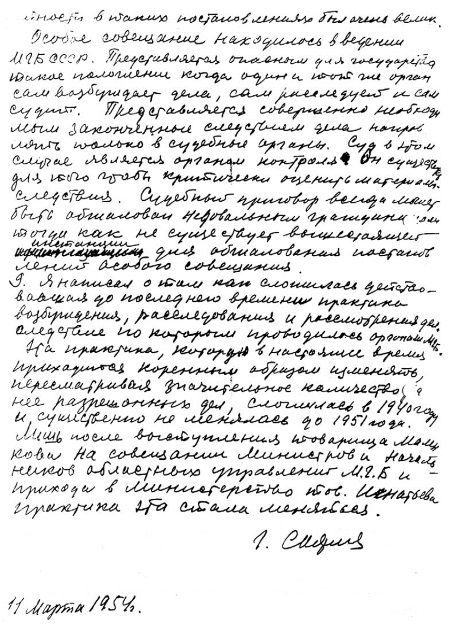 ность в таких постановлениях был очень велик.
Особое совещание находилось в ведении
МГБ СССР. Представляется опасным для государства
такое положение когда один и тот же орган
сам возбуждает дела, сам расследует и сам
судит. Представляется совершенно необходи
мым законченные следствием дела направ
лять только в судебные органы. Суд в этом
случае является органом контроля. Он существует
для того чтобы критически оценить материалы
следствия. Судебный приговор всегда может
быть обжалован
тогда как не существует вышестоящей
инстанции для обжалования постанов
лений особого совещания.
9. Я написал о том как сложилась действо-
вавшая до последнего времени практика
возбуждения, расследования и рассмотрения дел,
следствие по которым проводилось органами МГБ.
Эта практика, которую в настоящее время
приходится коренным образом изменять,
пересматривая значительное количество
нее разрешенных дел, сложилась в 1940 году
и существенно не менялась до 1951 года.
Лишь после выступления товарища Мален
кова на совещании Министров и Началь
ников областных управлений М.Г.Б и
прихода в Министерство тов. Игнатьева
практика эта стала меняться.
11 Марта 1954г.